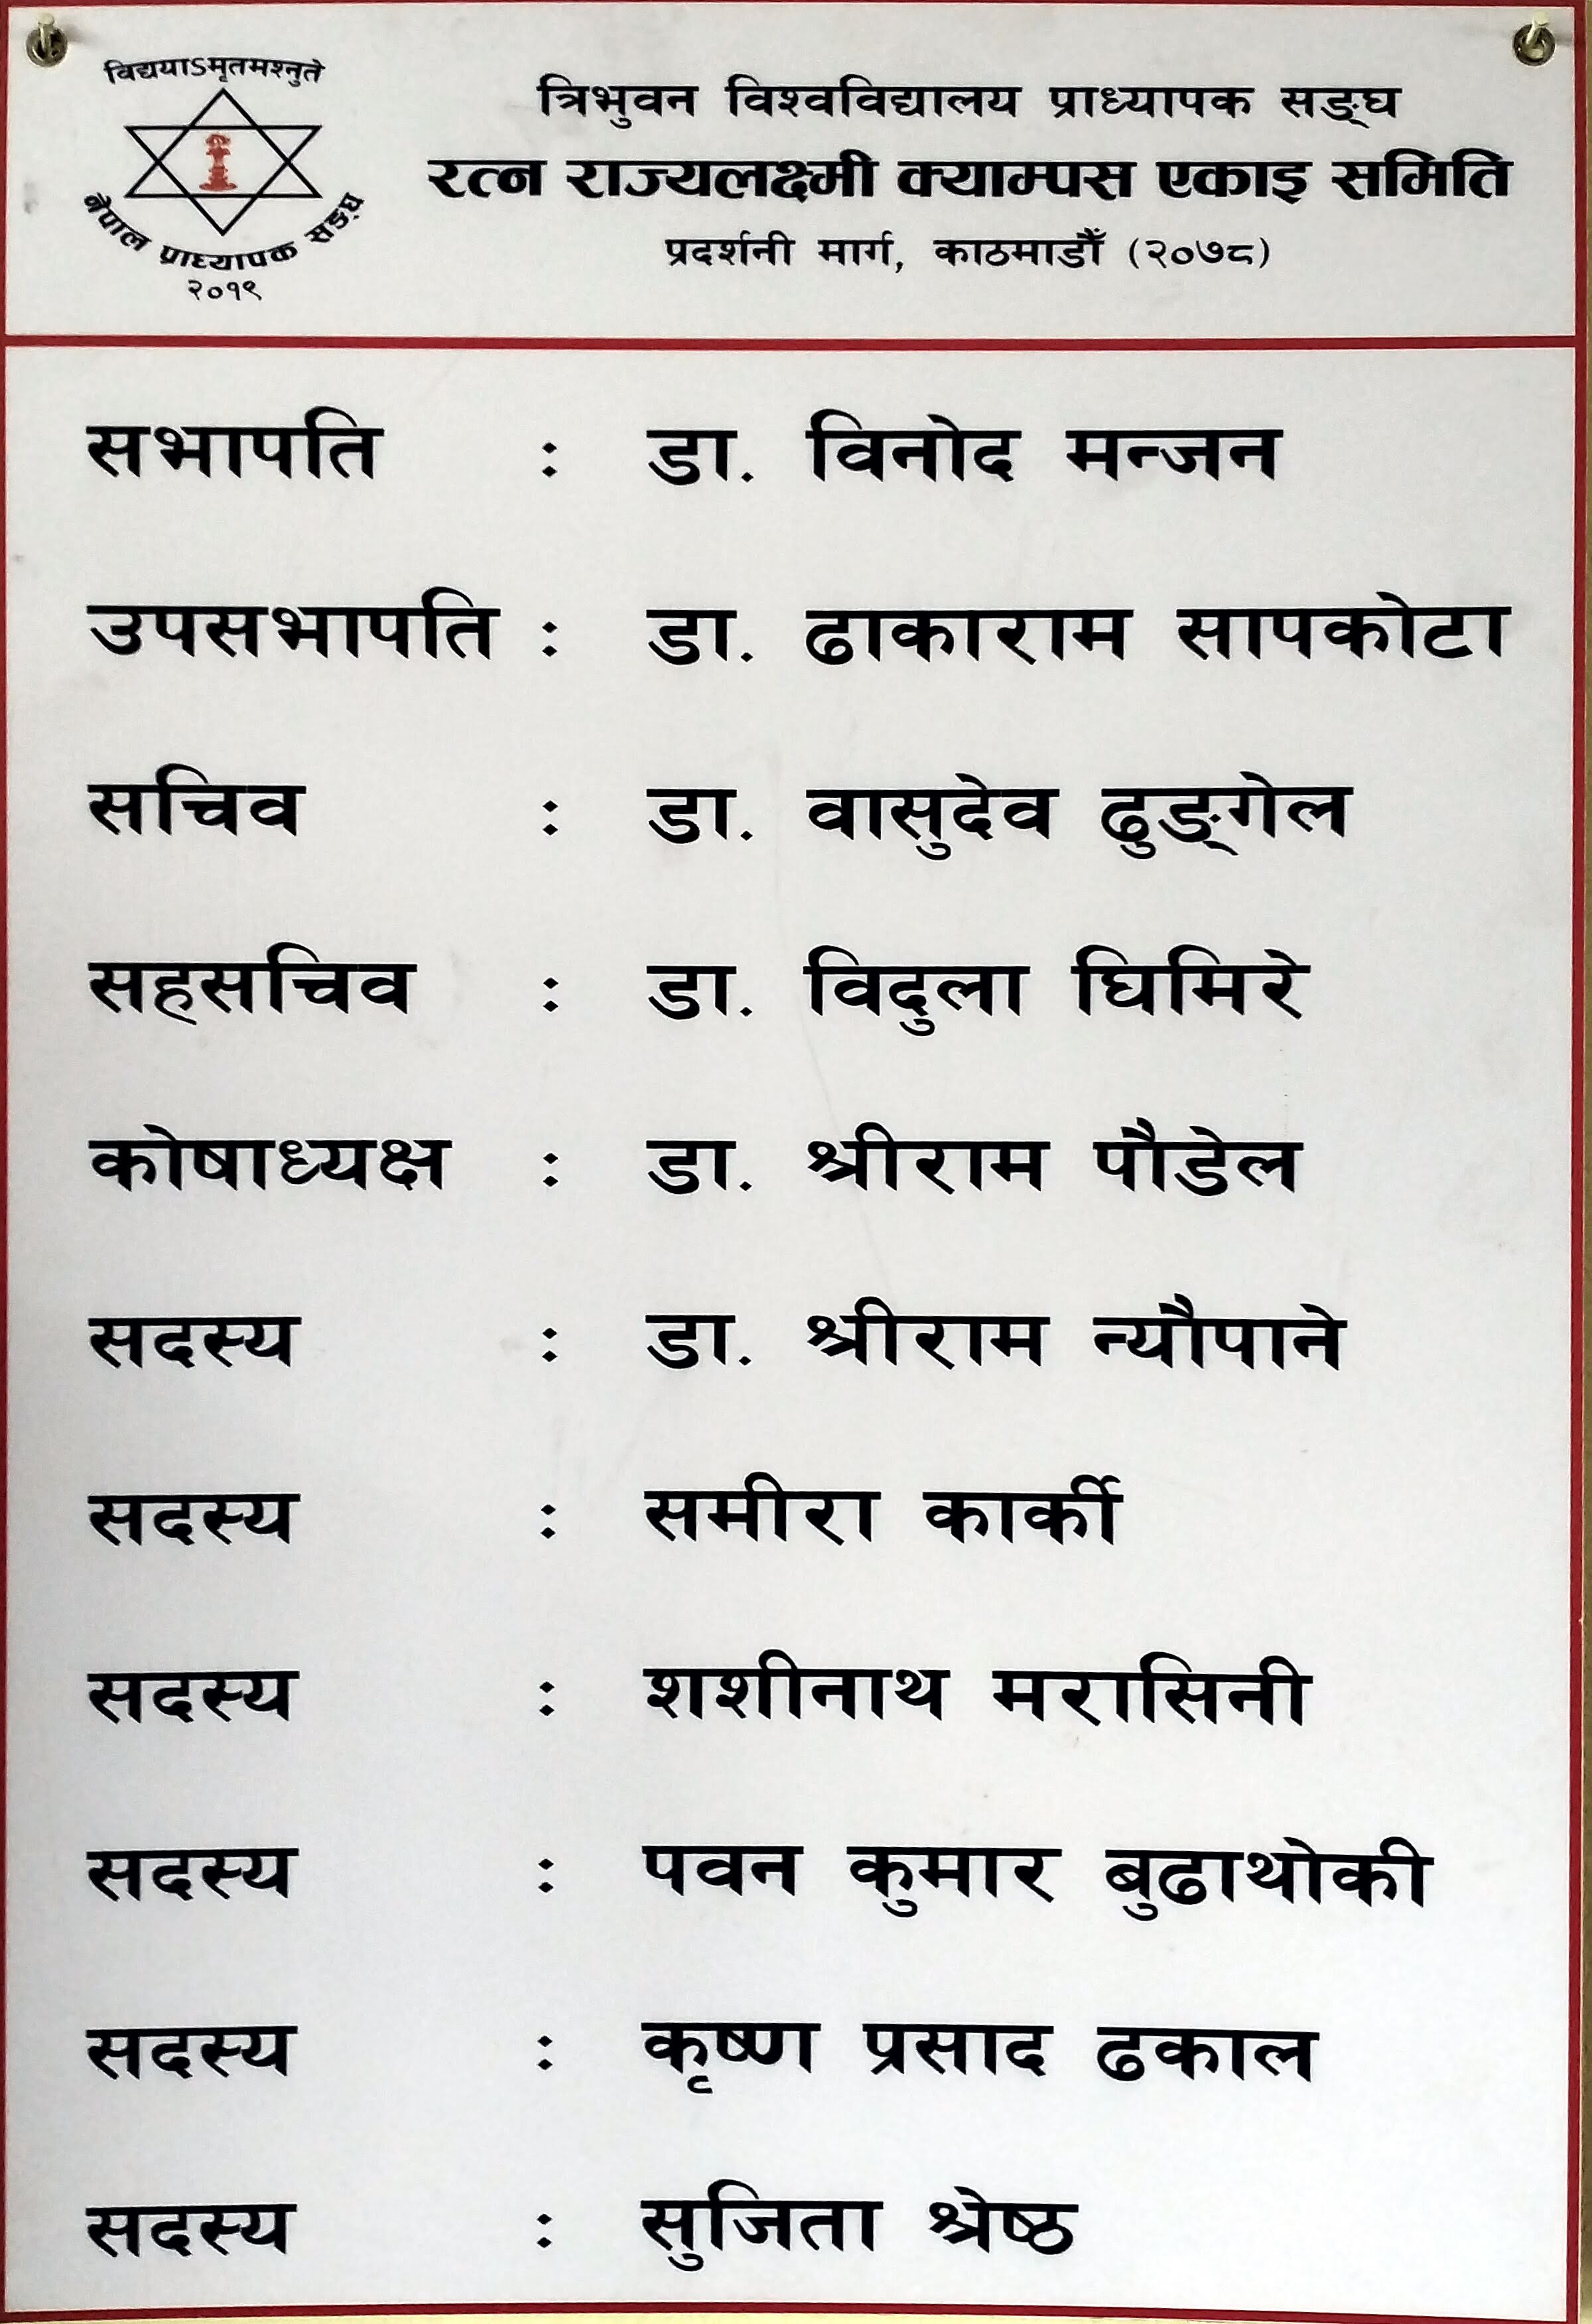 विद्ययाऽमृतमश्नुते
नेपाल प्राध्यापक सङ्घ
२०१९
त्रिभुवन विश्वविद्यालय प्राध्यापक सङ्घ
रत्न राज्यलक्ष्मी क्याम्पस एकाइ समिति
प्रदर्शनी मार्ग, काठमाडौँ (२०७८)
सभापति : डा. विनोद मन्जन
उपसभापति : डा. ढाकाराम सापकोटा
सचिव : डा. वासुदेव ढुङ्गेल
सहसचिव : डा. विदुला घिमिरे
कोषाध्यक्ष : डा. श्रीराम पौडेल
सदस्य : डा. श्रीराम न्यौपाने
सदस्य : समीरा कार्की
सदस्य : शशीनाथ मरासिनी
सदस्य : पवन कुमार बुढाथोकी
सदस्य : कृष्ण प्रसाद ढकाल
सदस्य : सुजिता श्रेष्ठ